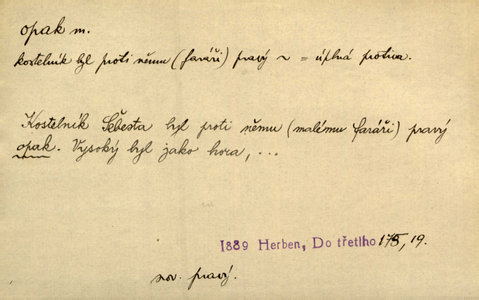 opak m.
kostelník byl proti němu (faráři) pravý ~ = úplná protiva.
Kostelník Šebesta byl proti němu (malému faráři) pravý
opak. Vysoký byl jako hora, ...
1889 Herben, Do třetího 19.
srv. pravý.